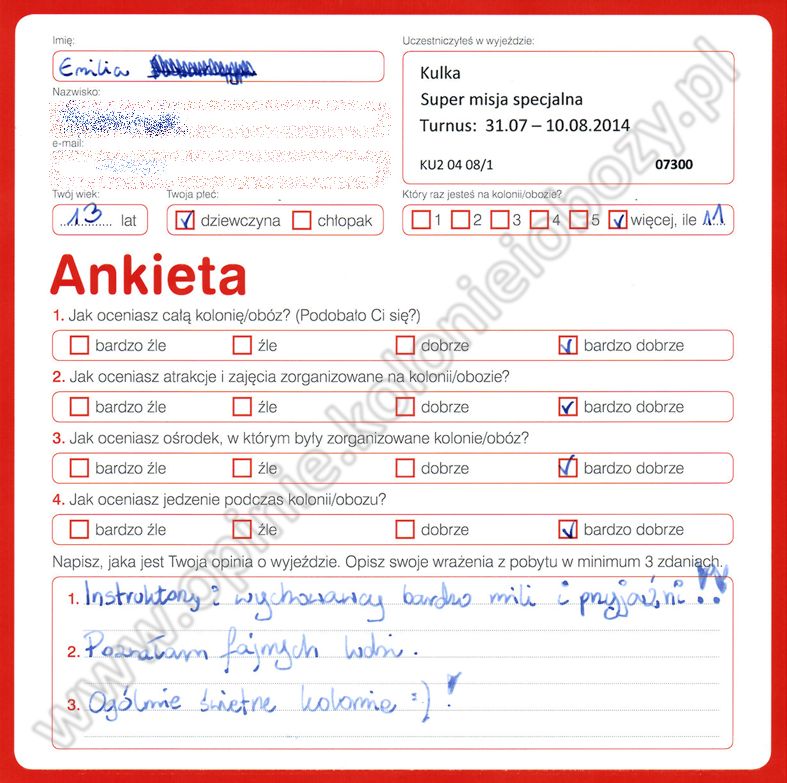 Imię:
Uczestniczyłeś w wyjeździe:
Emilia
Kulka
Super misja specjalna
Turnus: 31.07 – 10.08.2014
KU2 04 08/1 07300
Nazwisko:
e-mail:
Twój wiek:
Twoja płeć:
Który raz jesteś na kolonii/obozie?
13 lat
dziewczyna chłopak
1 2 3 4 5 więcej, ile 11
Ankieta
1. Jak oceniasz całą kolonię/obóz? (Podobało Ci się?)
bardzo źle źle dobrze bardzo dobrze
2. Jak oceniasz atrakcje i zajęcia zorganizowane na kolonii/obozie?
bardzo źle źle dobrze bardzo dobrze
3. Jak oceniasz ośrodek, w którym były zorganizowane kolonie/obóz?
bardzo źle źle dobrze bardzo dobrze
4. Jak oceniasz jedzenie podczas kolonii/obozu?
bardzo źle źle dobrze bardzo dobrze
Napisz, jaka jest Twoja opinia o wyjeździe. Opisz swoje wrażenia z pobytu w minimum 3 zdaniach.
1. Instruktorzy i wychowawcy bardzo mili i przyjaźni!!
2. Poznałam fajnych ludzi.
3. Ogólnie świetne kolonie :)!
www.opinie.kolonieiobozy.pl